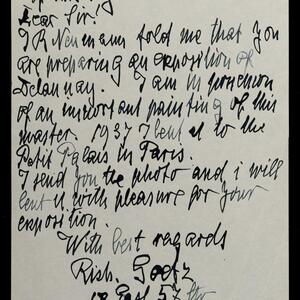 Dear Sir.
J B Neumann told me that you
are preparing an exposition of
Delaunay. I am in possession
of an important painting of this
master. 1937 I lent it to the
Petit Palais in Paris.
I send you the photo and i will
lent it with pleasure for your
exposition.
With best regards
Rich. Goetz
18 East 57th